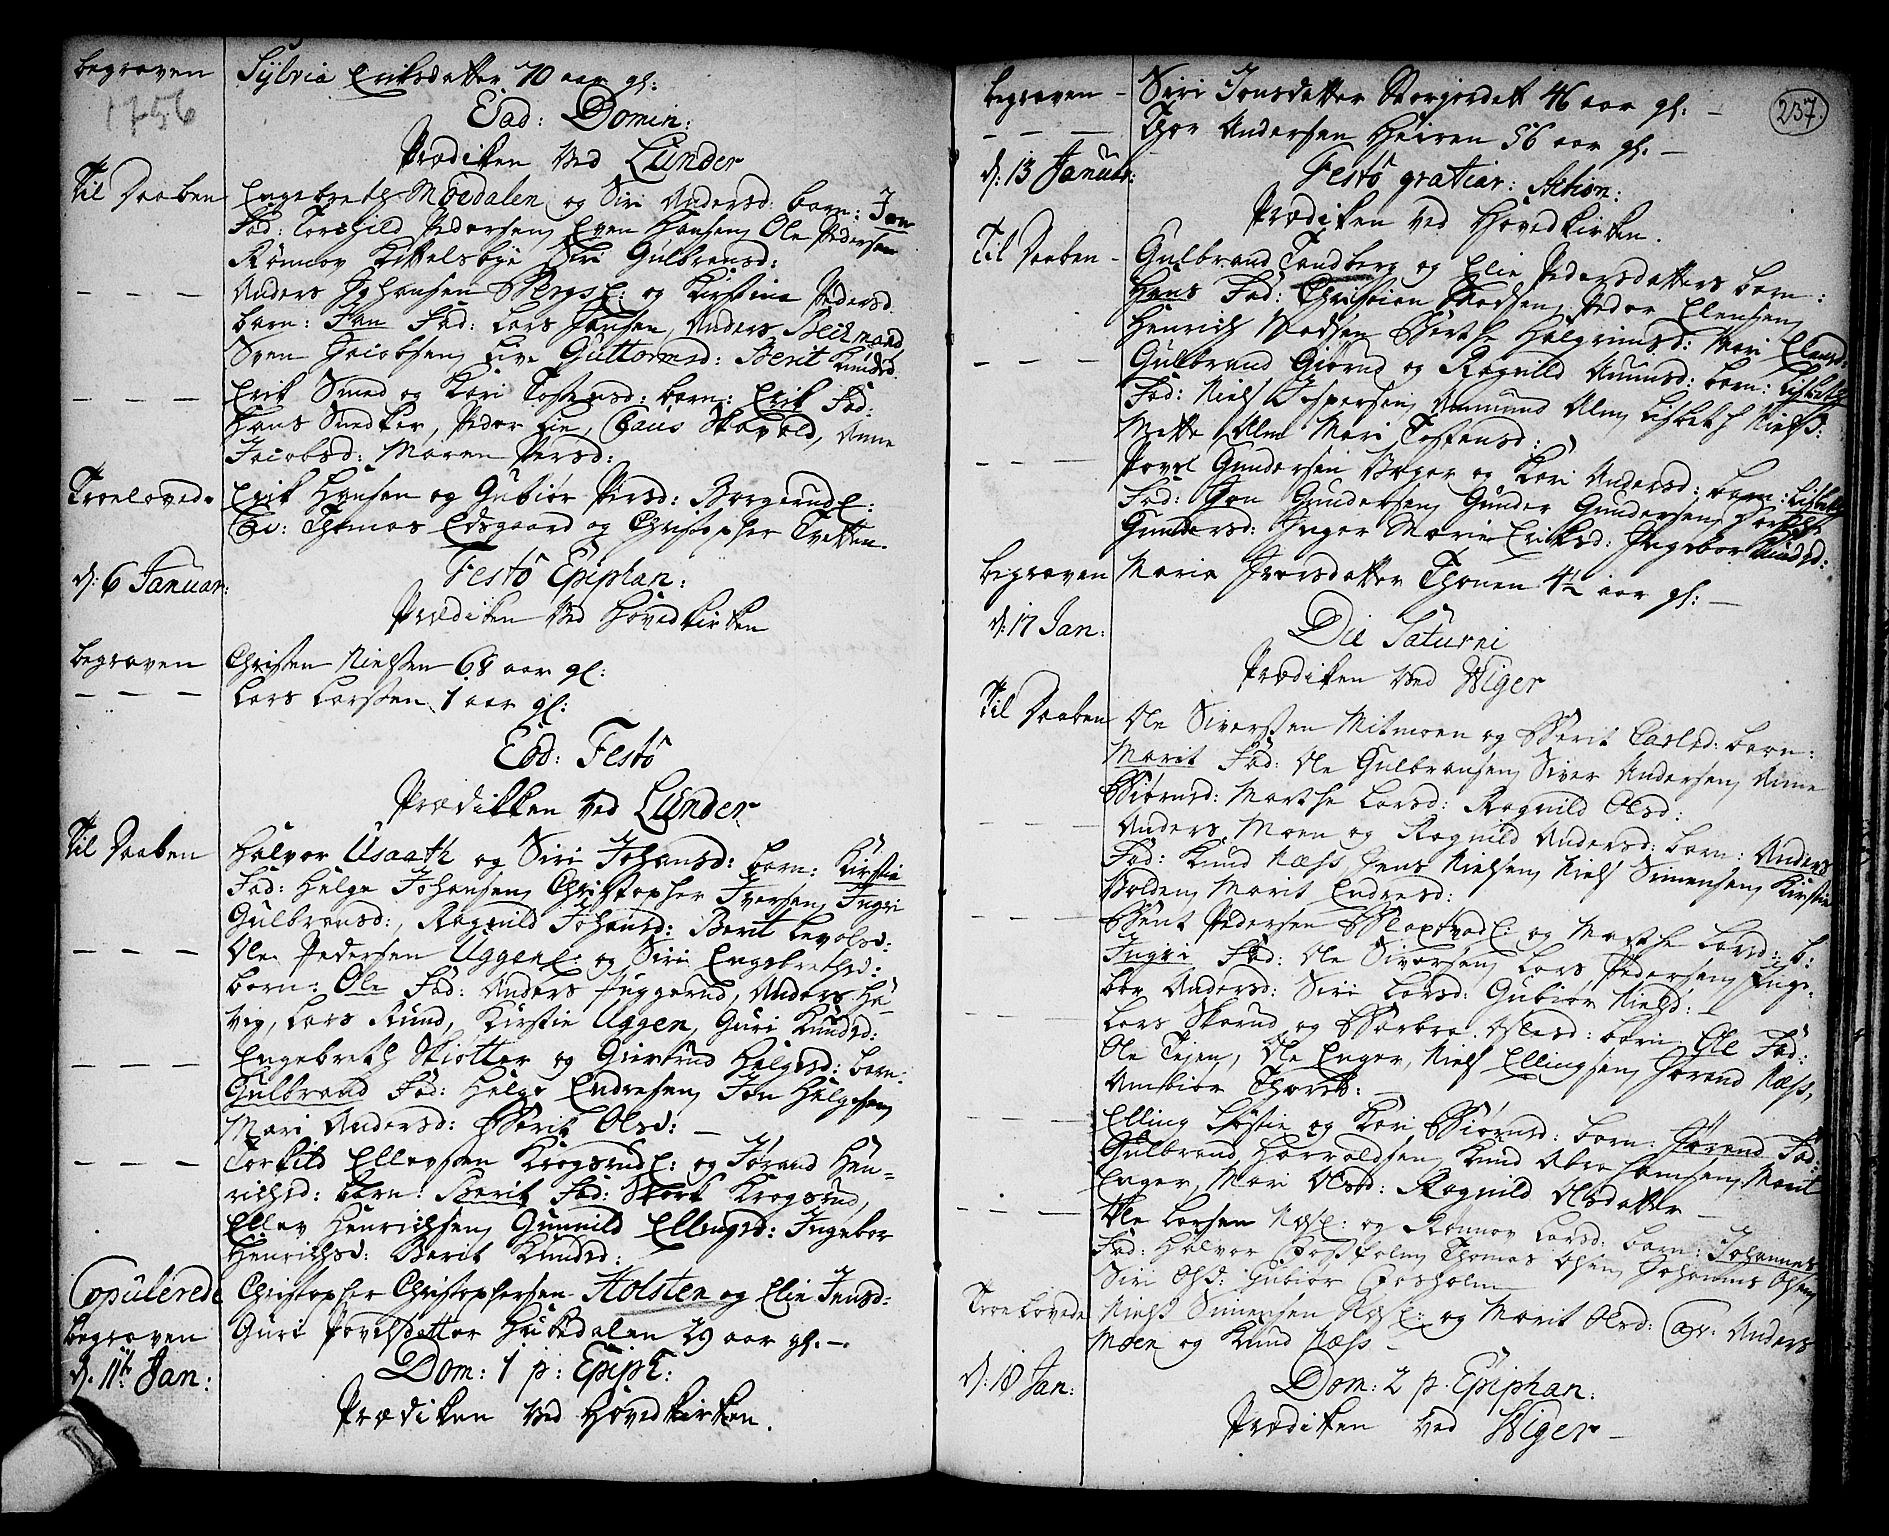 begraven Sÿlvia Eriksdatter 70 aar gl:
1756
Ead: Domin:
Prædiken ved Lunder
Til Daaben Engebreth Moedalen og Siri Andersd: barn: Jon
Fad: Torchild Pedersen, Even Hansen, Ole Pedersen
Rønnov Kittelsbye Siri Gulbransd:
— — — Anders Johansen Bergs E: og Kirstina Pedersd
barn: Jan Fad: Lars Jansen, Anders Beckmand
Sven Jacobsen, Live Guttormsd: Berit Knudsd.
— — — Erik Smed og Kari Tostensd: barn: Erik Fad:
Hans Snedker, Peder Lie, Claus Skavold, Anne
Jacobsd: Maren Persd:
Troelovede Erik Hansen og Gubiør Persd: Borgerud E:
Cav: Thomas Edsgaard og Christopher Tvetten.
d: 6 Januar: Festo Epiphan:
Prædiken ved Hovedkirken
begraven Christen Nielsen 68 aar gl:
— — — Lars Larssen 1 aar gl:
Eod: Festo
Prædikken ved Lunder
Til Daaben Halvor Usaath og Siri Johansd: barn: Kirstie
Fad: Helge Johansen, Christopher Iversen, Ingri
Gulbransd:, Ragnild Johansd: Berit Levolsd:
— — — Ole Pedersen Uggen E: og Siri Engebrethsd:
barn: Ole Fad: Anders Juggerud, Anders Hå-
vig, Lars Rund, Kirstie Uggen, Guri Knudsd:
— — — Engebreth Skiøtter og Giertrud Helgesd: barn:
Gulbrand Fad: Helge Endresen, Jon Helgesen,
Mari Andersd: Berit Olsd: —
— — — Torkild Ellevsen Krogsrud E: og Jørand Hen-
richsd: barn: Berit Fad: Krogsrud,
Ellev Henrichsen, Gunnild Ellingsd: Ingebor
Henrichsd: Berit Knudsd:
Copulerede Christopher Christophersen Holsten og Elie Jensd:
begraven Guri Povelsdatter Hukedalen 29 aar gl. —
d. 11te Jan: Dom: 1 p: Epiph:
Prædiken ved Hovedkirken.
237.
begraven — Siri Jonsdatter Storjordet 46 aar gl: —
— — — Thor Andersen Heieren 56 aar gl. —
d: 13 Januar: Festo gratiar: Action:
Prædiken ved Hovedkirken.
Til Daaben — Gulbrand Tandberg og Elie Pedersdatters barn:
Hans Fad: Christian Madsen, Peder Elensen,
Henrich Madsen, Berthe Halgrimsd: Mari Elensd:
— — — Gulbrand Giørud og Ragnild Amunsd: barn: Lisbeth
Fad: Niels Jespersen, Amund Alm, Lisbeth Nielsd:
Mette Alm Mari Tostensd:
— — — Povel Gundersen Bager og Kari Andersd: barn: Lisbeth
Fad: Jon Gundersen, Gunder Gundersen,
Gundersd: Inger Marie Eriksd: Ingebor Knudsd:
begraven Maria Iversdatter Thonen 4½ aar gl: —
d: 17 Jan: Die Saturni
Prædiken ved Wiger
Til Daaben Ole Siverssen Mitmoen og Berit Carlsd: barn:
Marit Fad: Ole Gulbransen, Siver Andersen, Anne
Biørnsd: Marthe Larsd: Ragnild Olsd:
— — — Anders Moen og Ragnild Andersd: barn: Anders
Fad: Knud Næss, Jens Nielsen, Niels Simensen, Kirstie
Volden, Marit Endresd:
— — — Bent Pedersen E: og Marthe Larsd: b:
Ingri Fad: Ole Siversen, Lars Pedersen, Inge-
bor Andersd: Siri Larsd: Gubiør Nielsd: —
— — — Lars Skarud og Barbra Olsd: barn: Ole Fad:
Ole Tejen, Ole Enger, Niels Ellingsen, Jørend Næss,
Ambiør Thorst: —
— — — Elling og Kari Biørnsd: barn: Jørend Fad:
Gulbrand Harraldsen, Knud Abrahamsen, Marit
Enger, Mari Olsd: Ragnild Olsdatter —
— — — Ole Larsen Næs E: og Rønnov Larsd: barn: Johannes
Fad: Halvor Fosholm, Thomas Olsen, Johannes Olsen,
Siri Olsd: Gubiør Fosholm
Troelovede Niels Simensen Næs E: og Marit Olsd: Cav: Anders
Moen og Knud Næss —
d: 18 Jan: Dom: 2 p. Epiphan:
Prædiken ved Wiger —